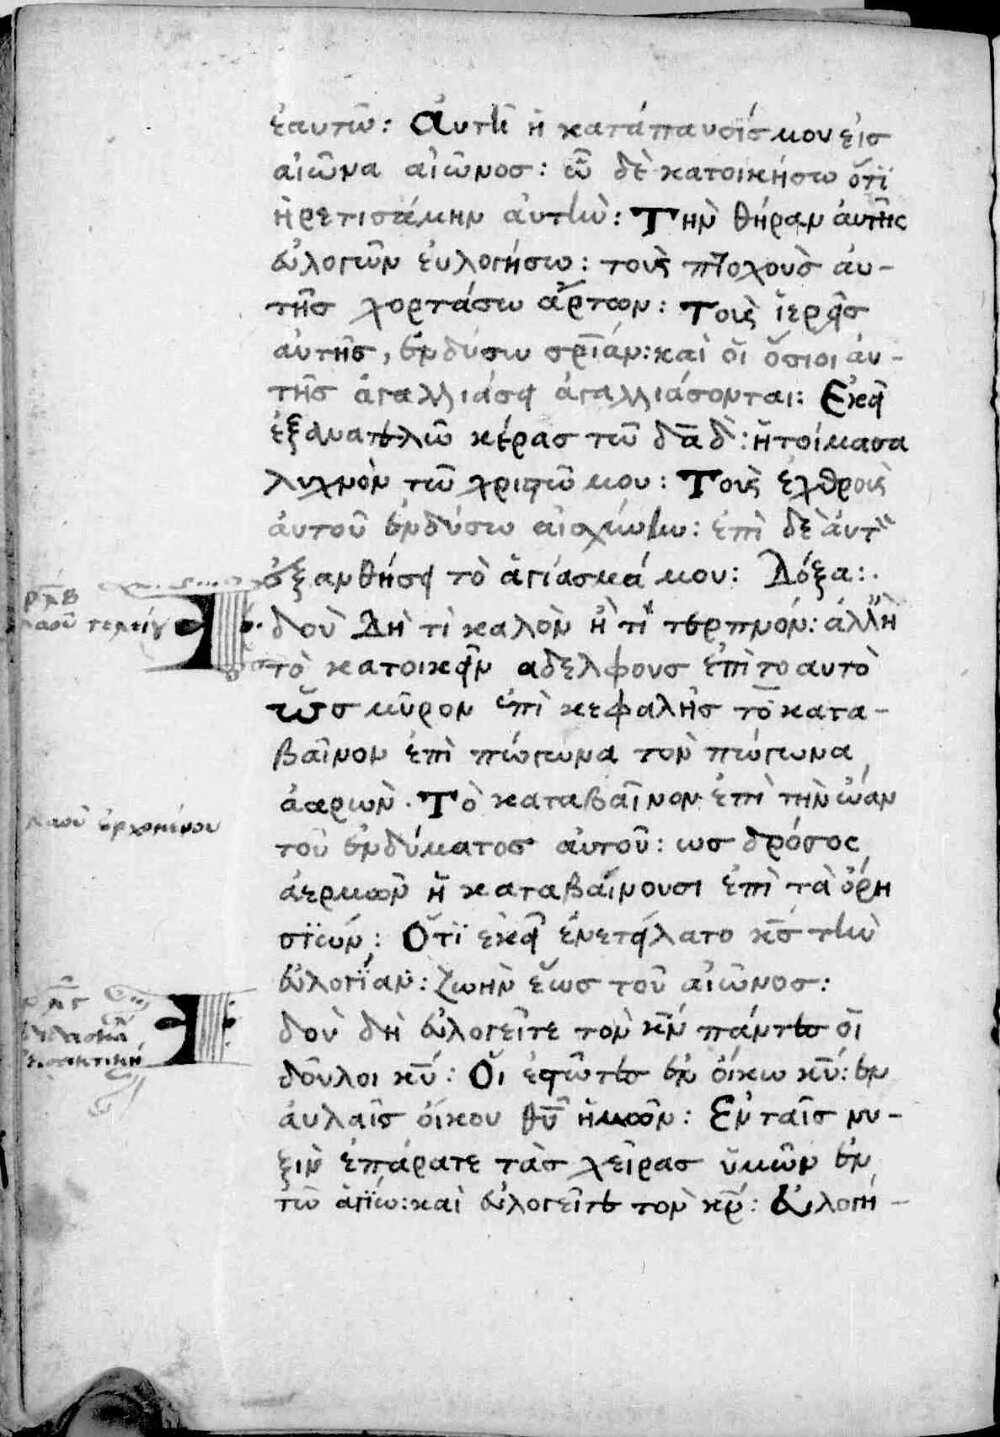 ἑαυτῶ: Ἁυτὴ ἡ κατάπαυσίς μου εἰσ
αἰῶνα αἰῶνοσ: ὧ δὲ κατοικήσω ὅτϊ
ἡρετισάμην ἀυτὴν: Τὴν θήραν ἀυτῆς
ἐυλογῶν ἐυλογήσω: τοὺς πτοχοὺσ ἀυ-
τῆσ χορτάσω ἄρτων: Τοὺς ἱερεῖσ
αὐτῆσ, ἐνδύσω σρΐαν: καὶ οἵ ὅσιοι ἀυ-
τῆσ ἀγαλλιάσει ἀγαλλιάσονται: Εκεῖ
ἐξανατελῶ κέρασ τῶ δᾱδ: ἡτοίμασα
λυχνὸν τῶ χριστῶ μου: Τοὺς ἐχθροὺς
ἀυτοῦ ἐνδύσω αἰσχύνην: ἐπὶ δὲ ἀυτὸν
ἐξανθήσει τὸ ἁγίασμά μου: Δόξα:.
ρλβ
λαοῦ τελείου
Ἰδοὺ Δὴ τὶ καλὸν ἢ τί τερπνόν: ἀλλὴ
τὸ κατοικεῖν αδελφουσ ἐπὶ το αυτὸ
ὧσ μῦρον ἐπὶ κεφαλῆσ τὸ κατα-
βαῖνον ἐπὶ πώγωνα τὸν πώγωνα
ἀαρων. Τὸ καταβαῖνον ἐπὶ τὴν ὤαν
λαοῦ ἐρχομένου
τοῦ ἐνδύματοσ αὐτοῦ: ωσ δρόσος
ἀερμὼν ἣ καταβαίνουσι ἐπὶ τὰ ὄρη
σϊών: Ὅτϊ ἐκεῖ ἐνετείλατο κς τὴν
ἐυλογΐαν: ζωὴν ἕωσ τοῦ αἰῶνοσ:
ρλγ
διδασκα
Ἰδοὺ δὴ ἐυλογεῖτε τὸν κν πάντεσ οἱ
δοῦλοι κυ: Οἵ ἑστῶτεσ ἐν οἴκω κυ: ἐν
ἀυλαῖσ οἴκου θυ ἡμῶν: Εν ταῖσ νυ-
ξὶν ἐπάρατε τὰσ χεῖρασ ὑμῶν ἐν
τῶ ἁγΐω: καὶ ἐυλογεῖτε τὸν κν: Ἐυλογή-